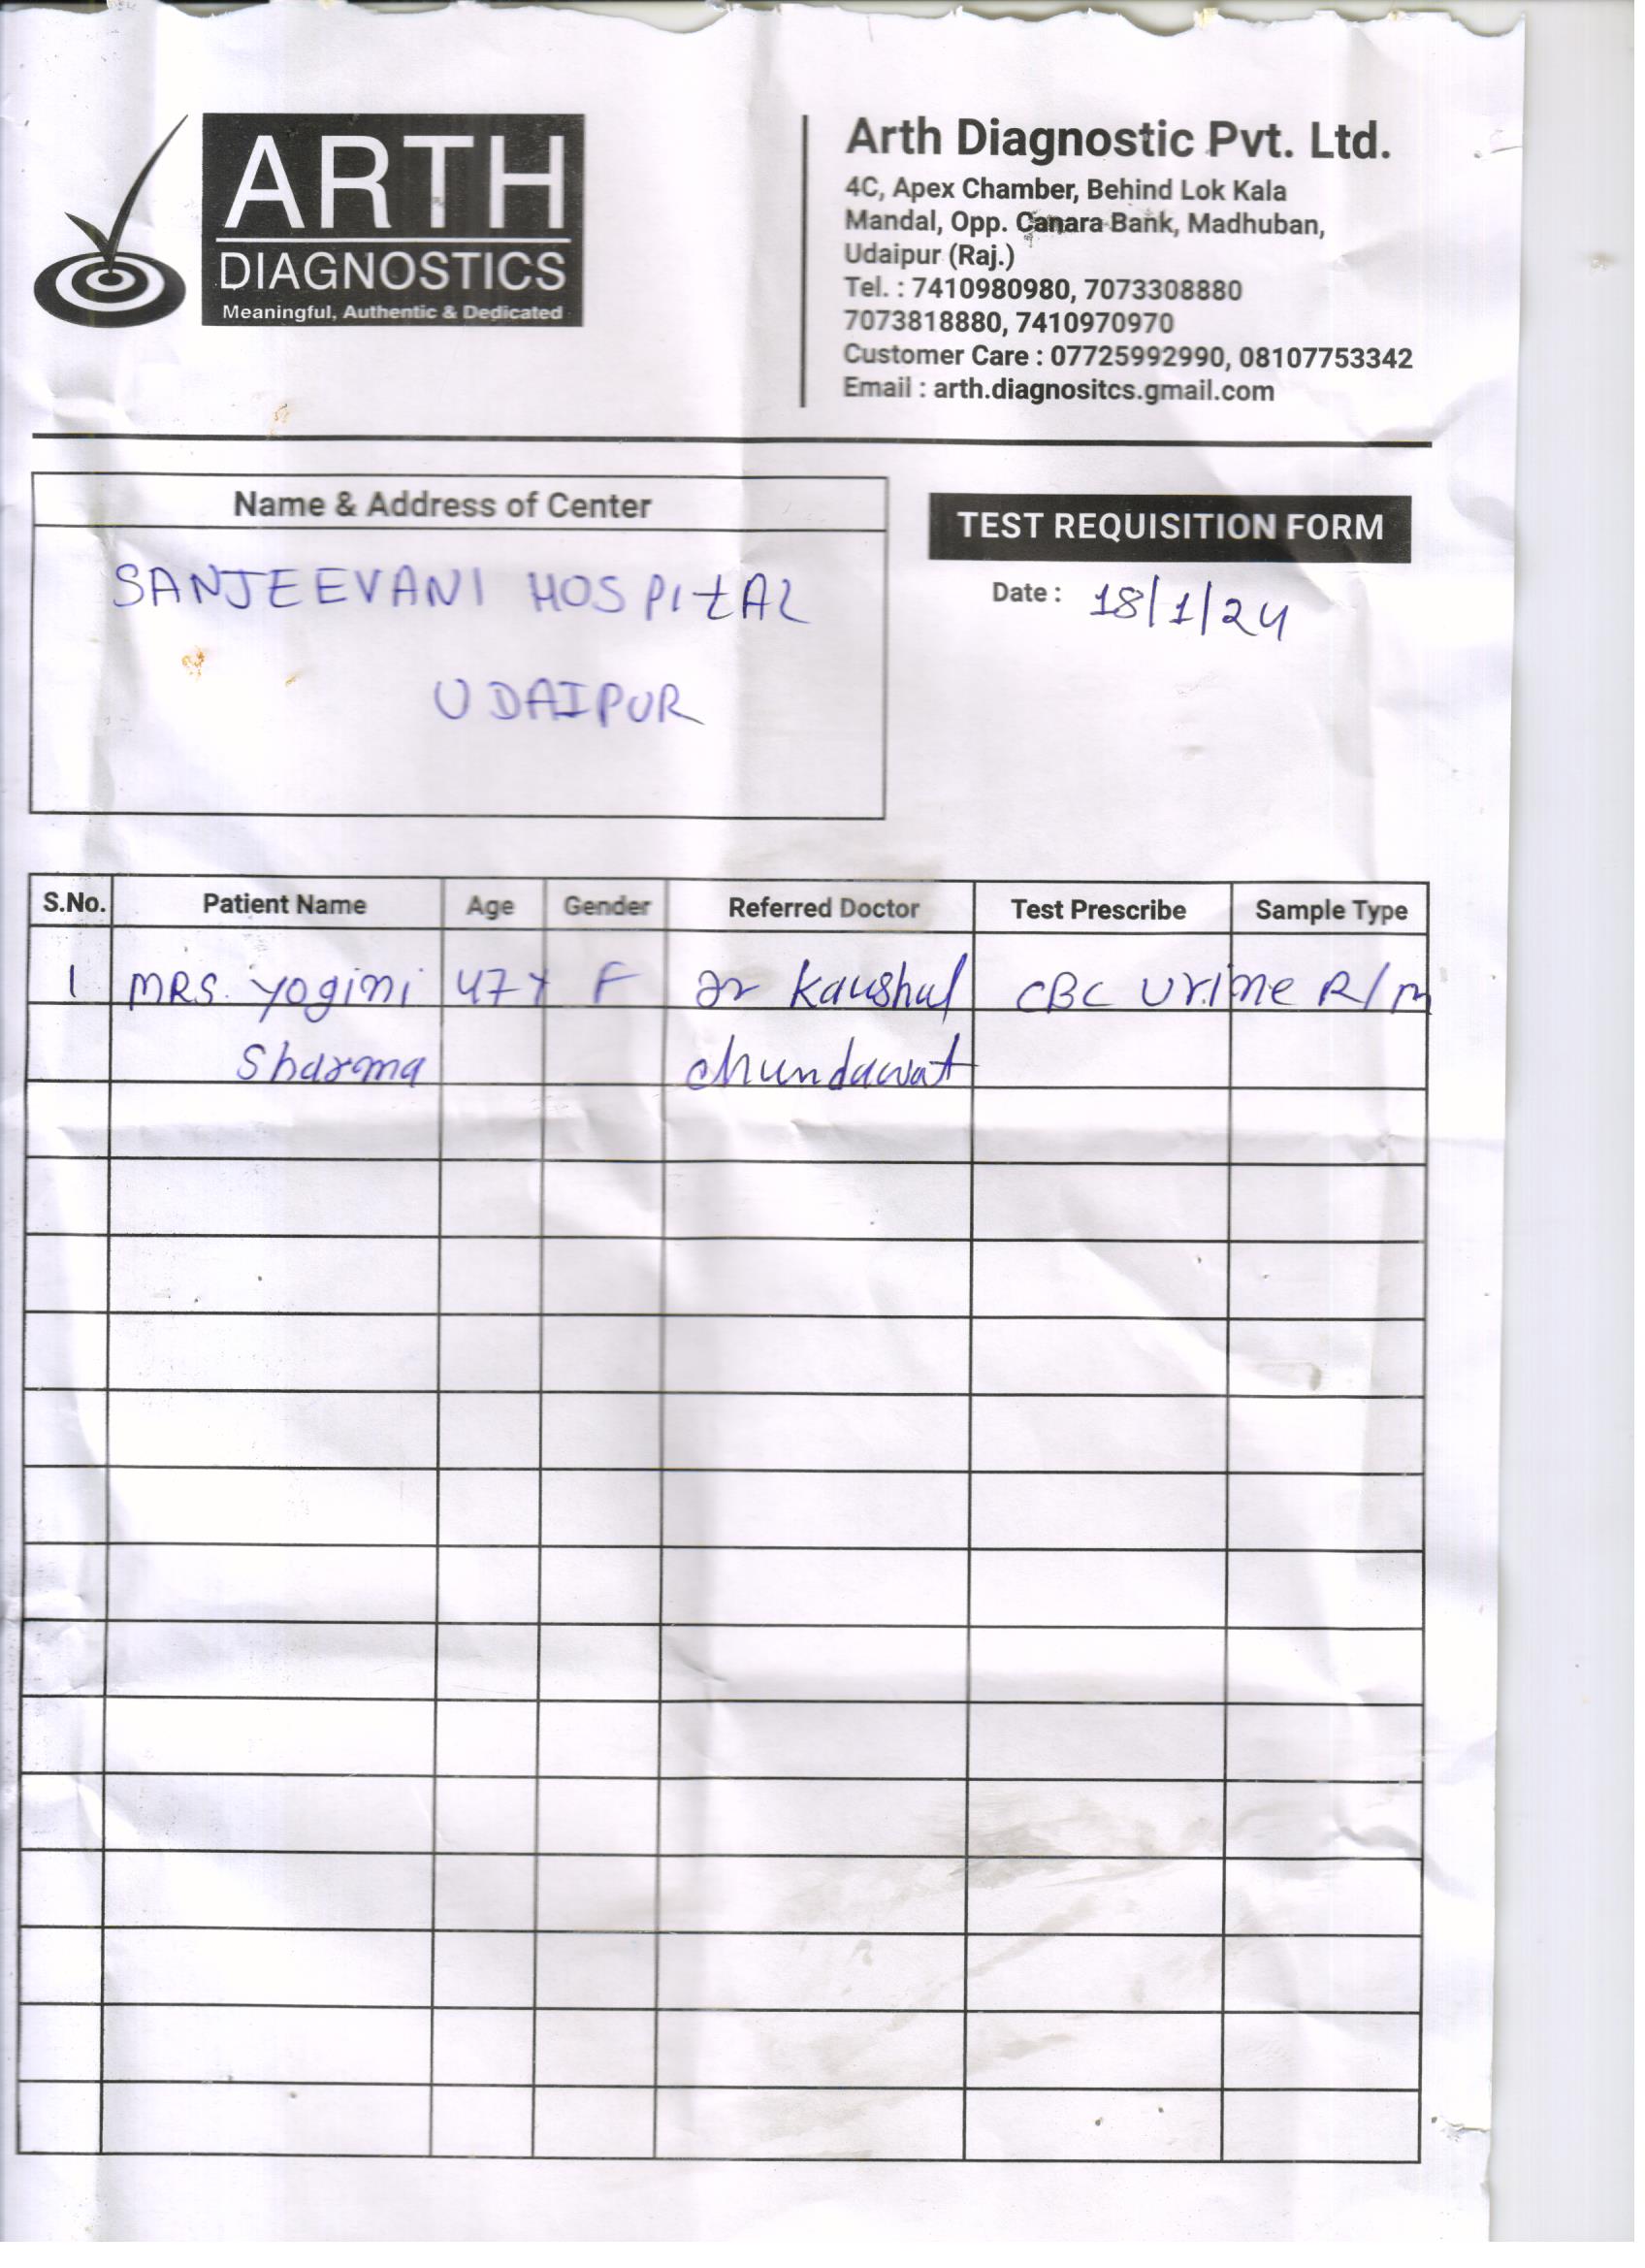 ARTH
DIAGNOSTICS
Meaningful, Authentic & Dedicated
Arth Diagnostic Pvt. Ltd.
4C, Apex Chamber, Behind Lok Kala
Mandal, Opp. Canara Bank, Madhuban,
Udaipur (Raj.)
Tel. : 7410980980, 7073308880
7073818880, 7410970970
Customer Care : 07725992990, 08107753342
Email : arth.diagnositcs.gmail.com
Name & Address of Center
SANJEEVANI HOSPItAL
UDAIPUR
TEST REQUISITION FORM
Date : 18/1/24
S.No. Patient Name Age Gender Referred Doctor Test Prescribe Sample Type
1 MRS. yogini 47Y F Dr Kaushal CBC Urine R/m
Sharma chundawat